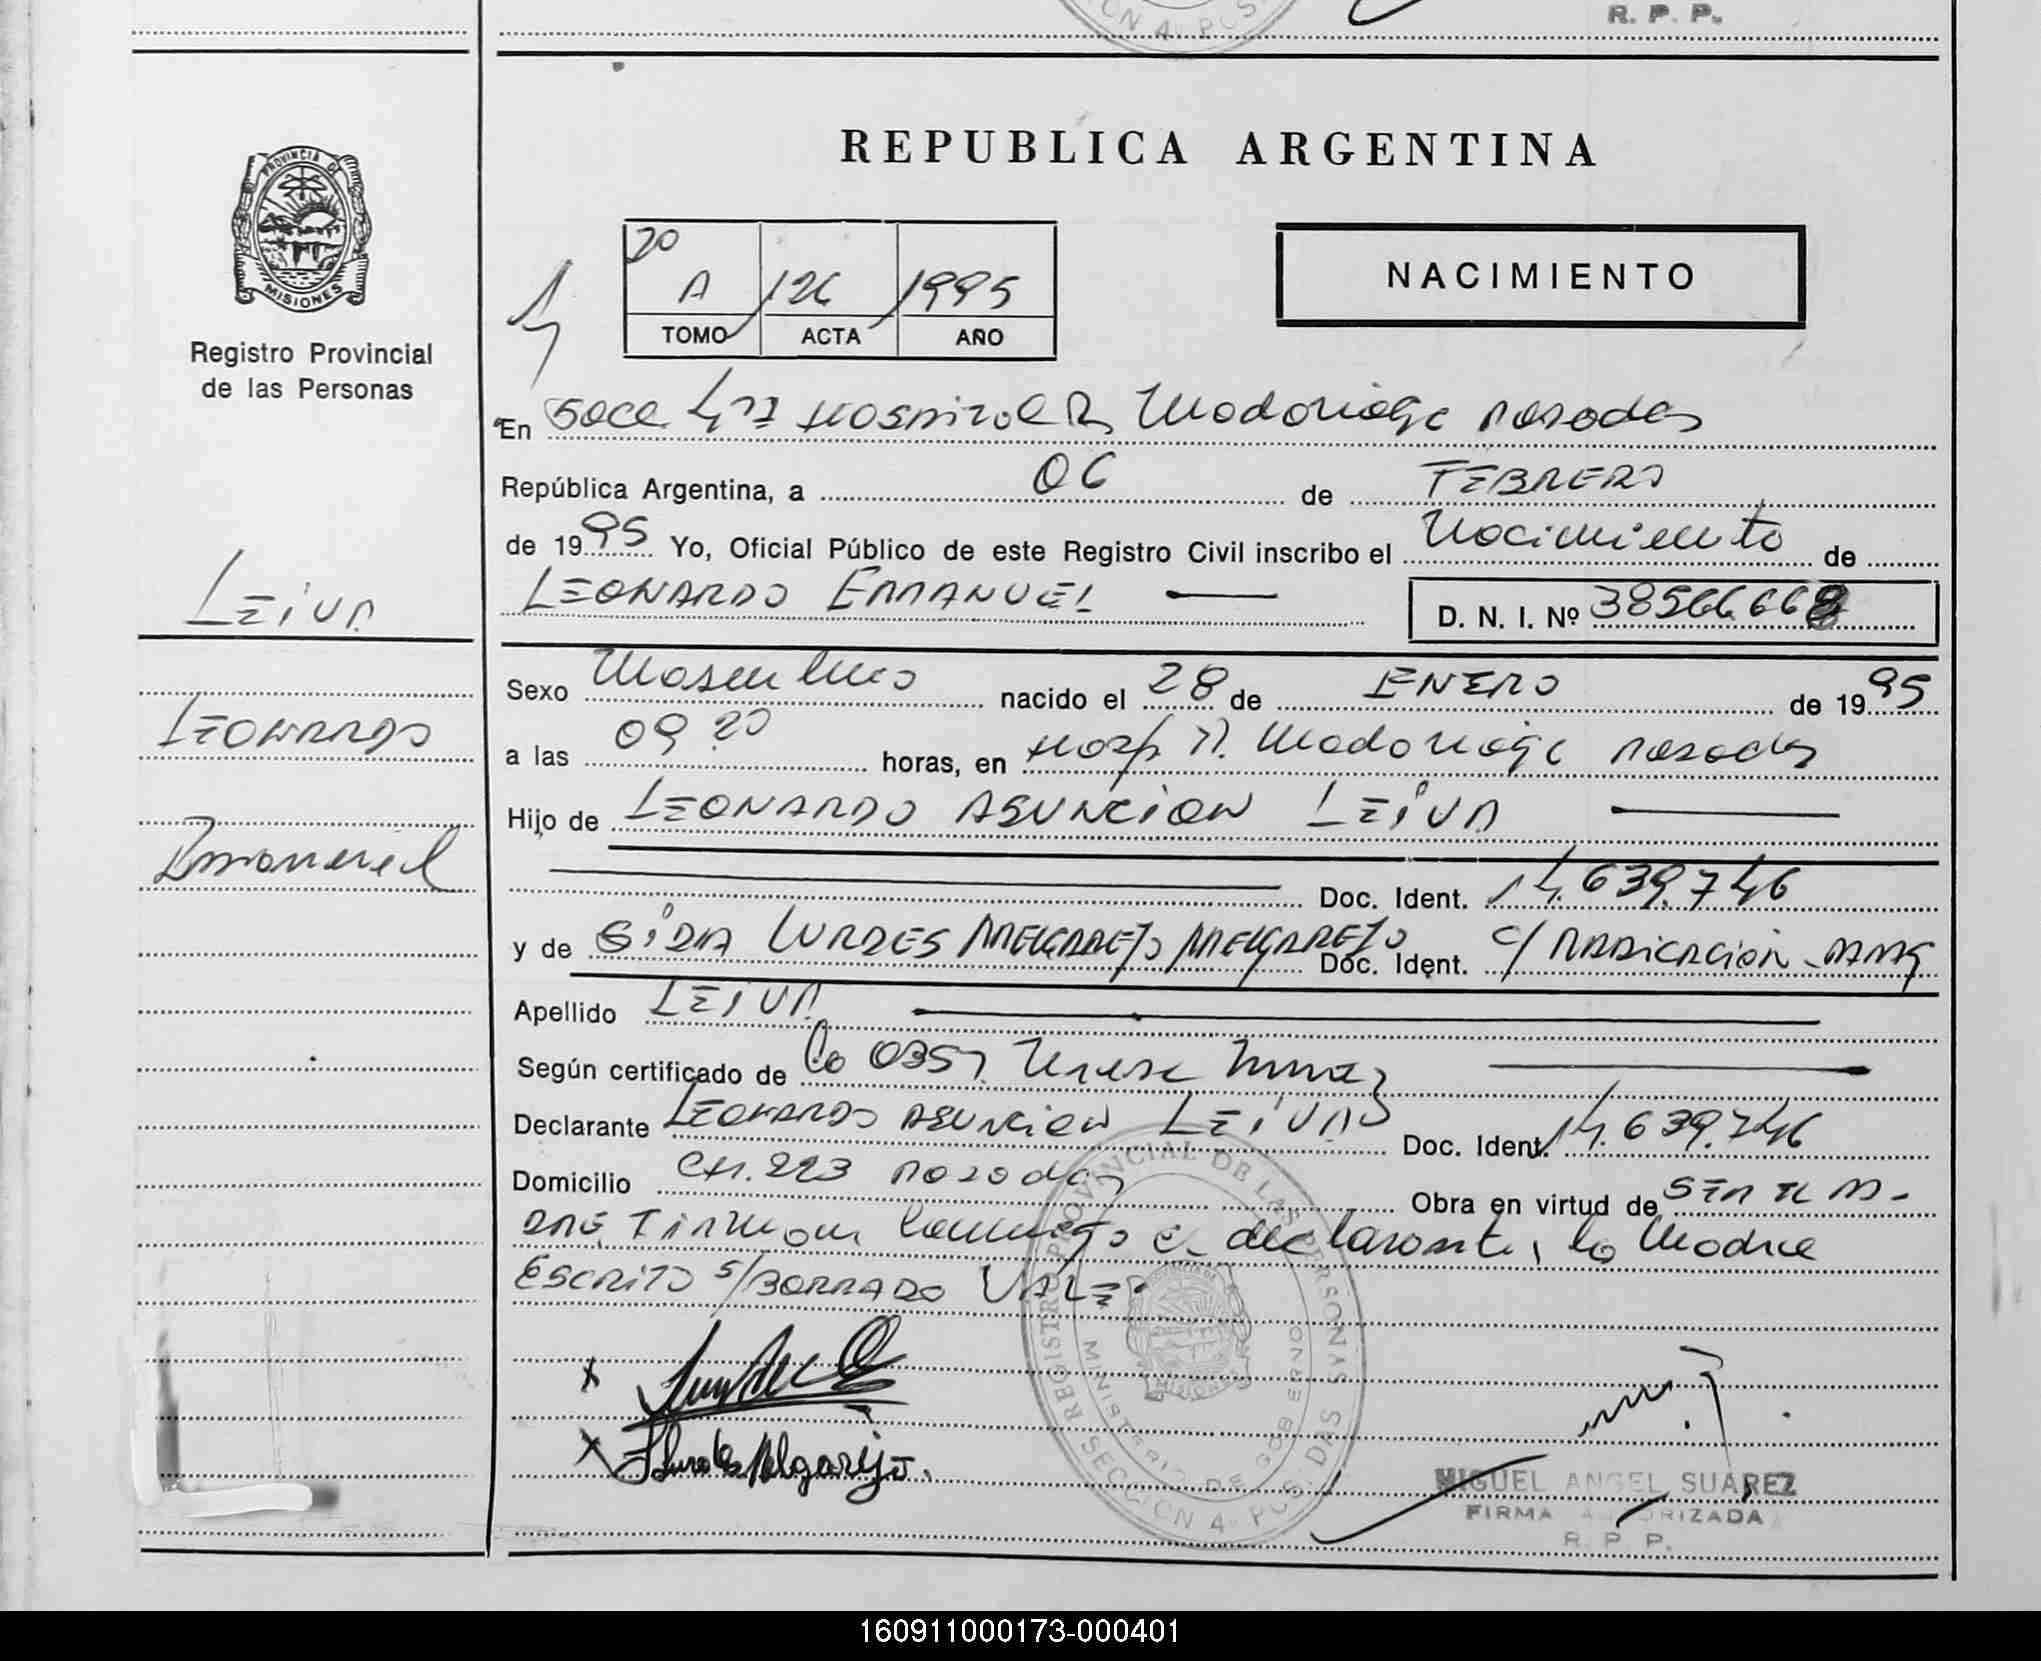 R. P. P.
REPUBLICA ARGENTINA
PROVINCIA DE
MISIONES
Registro Provincial
de las Personas
20
A 126 1995
TOMO ACTA AÑO
NACIMIENTO
En Secc 4ta Hospital R. Madariaga Posadas
República Argentina, a 06 de FEBRERO
de 1995 Yo, Oficial Público de este Registro Civil inscribo el Nacimiento de
LEONARDO EMMANUEL D. N. I. Nº 38566668
LEIVA
Sexo Masculino nacido el 28 de ENERO de 1995
LEONARDO
a las 09 20 horas, en Hosp R. Madariaga Posadas
Hijo de LEONARDO ASUNCION LEIVA
Emmanuel
Doc. Ident. 14.639.746
y de LURDES MELGAREJO MELGAREJO Doc. Ident. C/ RADICACION
Apellido LEIVA
Según certificado de la Obst.
Declarante LEONARDO ASUNCION LEIVA Doc. Ident. 14.639.746
Domicilio CH. 223 Posadas Obra en virtud de SER EL PA-
DRE. FIRMAN conmigo el declarante, la Madre
ESCRITO S/BORRADO VALE
REGISTRO PROVINCIAL DE LAS PERSONAS
MINISTERIO DE GOBIERNO
MISIONES
SECCION 4 POSADAS
Lurdes Melgarejo.
MIGUEL ANGEL SUAREZ
FIRMA AUTORIZADA
R. P. P.
160911000173-000401